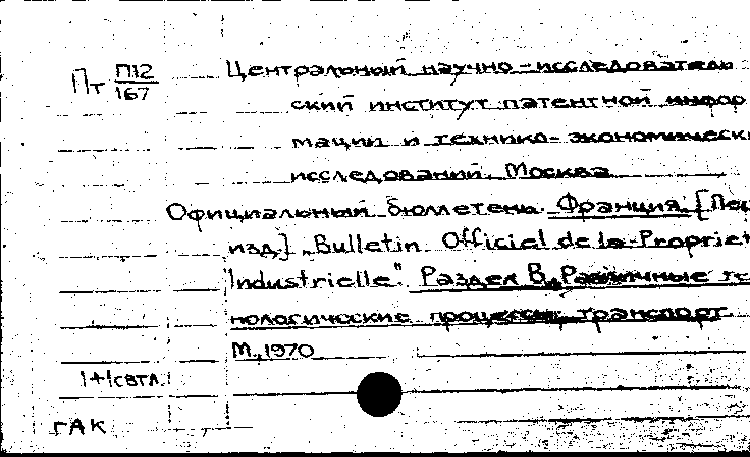 Пт П12/167 Центральный научно-исследователь
ский институт патентной инфор
мации и технико-экономически
исследований. Москва
Официальный бюллетень. Франция. [Пер
изд.] „Bulletin Officiel de la Propriet
Industrielle". Раздел В. Различные те
нологические процессы, транспорт
М., 1970
1+1
ГАК